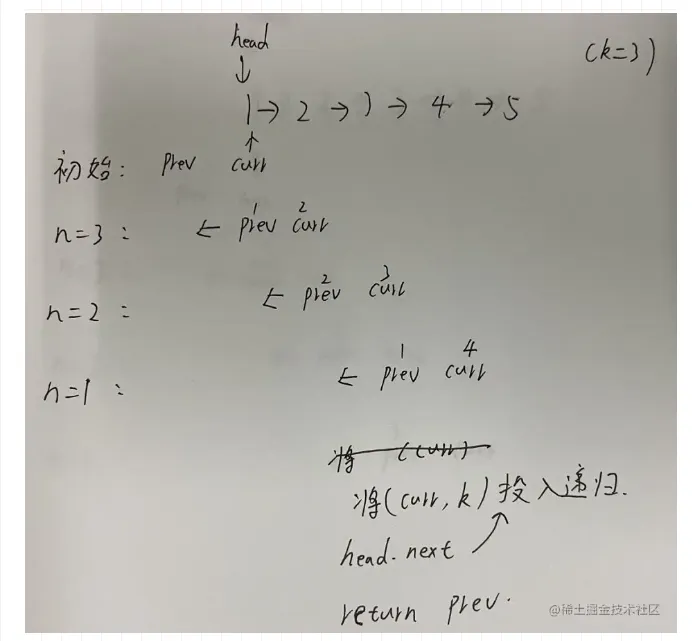 head
(k=3)
↓
1→ 2 →3 → 4 →5
↑
初始: prev curr
1 2
n=3: ← prev curr
2 3
n=2: ← prev curr
1 4
n=1: ← prev curr
将 (curr)
将(curr, k) 投入递归.
head.next ↗
return prev.
@稀土掘金技术社区